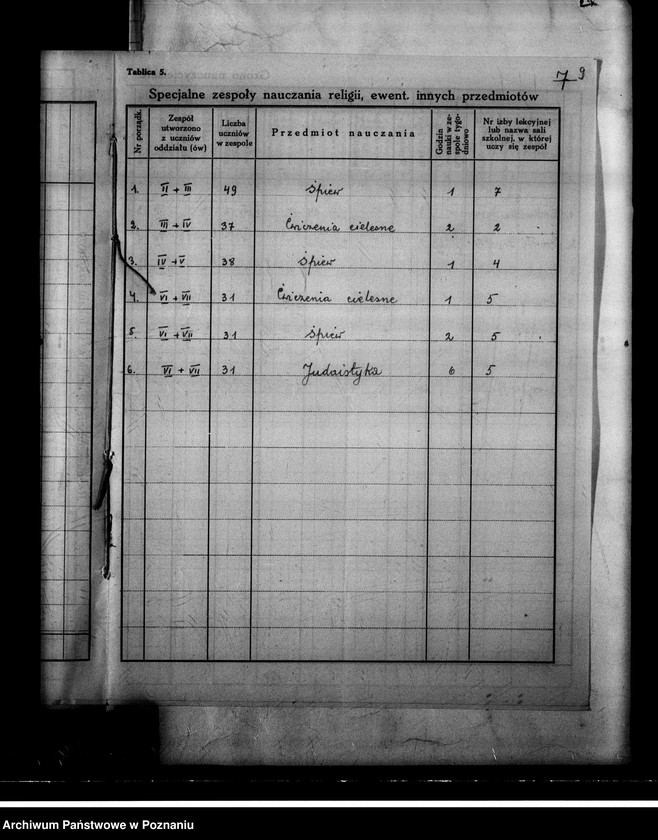 Tablica 5.
7 9
Specjalne zespoły nauczania religii, ewent. innych przedmiotów
Nr porządk.
Zespół utworzono z uczniów oddziału (ów)
Liczba uczniów w zespole
Przedmiot nauczania
Godzin nauki w zespole tygodniowo
Nr izby lekcyjnej lub nazwa sali szkolnej, w której uczy się zespół
1. II + III 49 Śpiew 1 7
2. III + IV 37 Ćwiczenia cielesne 2 2
3. IV + V 38 Śpiew 1 4
4. VI + VII 31 Ćwiczenia cielesne 1 5
5. VI + VII 31 Śpiew 2 5
6. VI + VII 31 Judaistyka 6 5
Archiwum Państwowe w Poznaniu